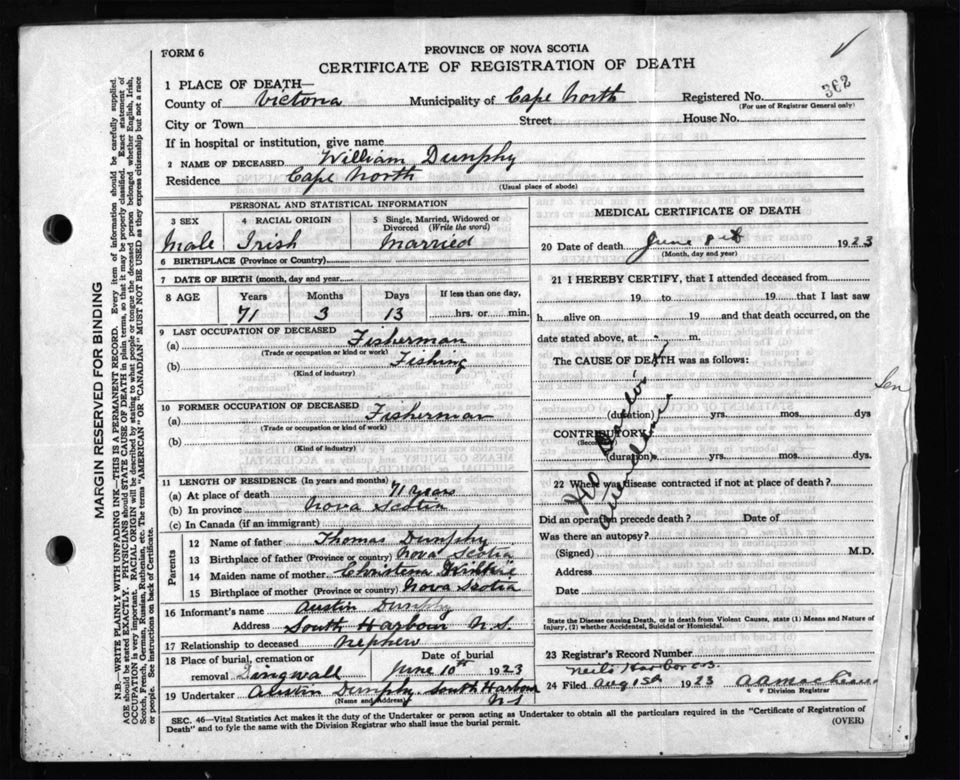 FORM 6
PROVINCE OF NOVA SCOTIA
CERTIFICATE OF REGISTRATION OF DEATH
362
1 PLACE OF DEATH—
County of Victoria Municipality of Cape North Registered No.
(For use of Registrar General only)
City or Town Street House No.
If in hospital or institution, give name
2 NAME OF DECEASED William Dunphy
Residence Cape North
(Usual place of abode)
PERSONAL AND STATISTICAL INFORMATION
3 SEX 4 RACIAL ORIGIN 5 Single, Married, Widowed or Divorced (Write the word)
Male Irish Married
6 BIRTHPLACE (Province or Country)
7 DATE OF BIRTH (month, day and year)
8 AGE Years Months Days If less than one day,
71 3 13 hrs. or min.
9 LAST OCCUPATION OF DECEASED
(a) Fisherman
(Trade or occupation or kind or work)
(b) Fishing
(Kind of industry)
10 FORMER OCCUPATION OF DECEASED
(a) Fisherman
(Trade or occupation or kind of work)
(b)
(Kind of industry)
11 LENGTH OF RESIDENCE (In years and months)
(a) At place of death 71 years
(b) In province Nova Scotia
(c) In Canada (if an immigrant)
Parents
12 Name of father Thomas Dunphy
13 Birthplace of father (Province or country) Nova Scotia
14 Maiden name of mother Christena
15 Birthplace of mother (Province or country) Nova Scotia
16 Informant's name Austin Dunphy
Address South Harbour N.S.
17 Relationship to deceased nephew
18 Place of burial, cremation or removal Dingwall
Date of burial June 10th 1923
19 Undertaker Austin Dunphy South Harbour NS
(Name and address)
MEDICAL CERTIFICATE OF DEATH
20 Date of death June 8th 1923
(Month, day and year)
21 I HEREBY CERTIFY, that I attended deceased from
19 to 19 that I last saw
h alive on 19 and that death occurred, on
date stated above, at m.
The CAUSE OF DEATH was as follows:
No Doctor
(duration) yrs. mos. dys
CONTRIBUTORY
(Secondary)
(duration) yrs. mos. dys.
22 Where was disease contracted if not at place of death?
Did an operation precede death? Date of
Was there an autopsy?
(Signed) M.D.
Address
Date
State the Disease causing Death, or in death from Violent Causes, state (1) Means and Nature of Injury, (2) whether Accidental, Suicidal or Homicidal.
23 Registrar's Record Number
Neils Harbor C.B.
24 Filed Aug 1st 1923
Division Registrar
SEC. 46—Vital Statistics Act makes it the duty of the Undertaker or person acting as Undertaker to obtain all the particulars required in the "Certificate of Registration of
Death" and to fyle the same with the Division Registrar who shall issue the burial permit.
(OVER)
MARGIN RESERVED FOR BINDING
N.B.—WRITE PLAINLY WITH UNFADING INK—THIS IS A PERMANENT RECORD. Every item of information should be carefully supplied.
AGE should be stated EXACTLY. PHYSICIANS should STATE CAUSE OF DEATH in plain terms, so that it may be properly classified. Exact statement of
OCCUPATION is very important. RACIAL ORIGIN will be described by stating to what people or tongue the deceased person belonged, whether English, Irish,
Scotch, French, German, Russian, Ruthenian, etc. The terms "AMERICAN" OR "CANADIAN" MUST NOT BE USED as they express citizenship but not a race
or people. See instructions on back of Certificate.